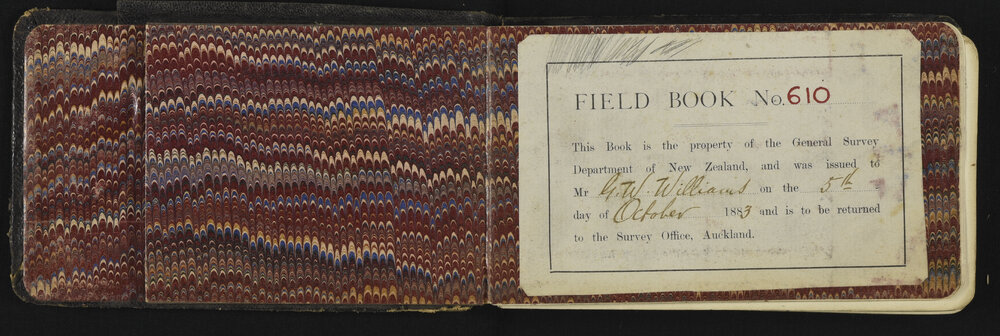 FIELD BOOK No. 610
This Book is the property of the General Survey
Department of New Zealand, and was issued to
Mr G. W. Williams on the 5th
day of October 1883 and is to be returned
to the Survey Office, Auckland.